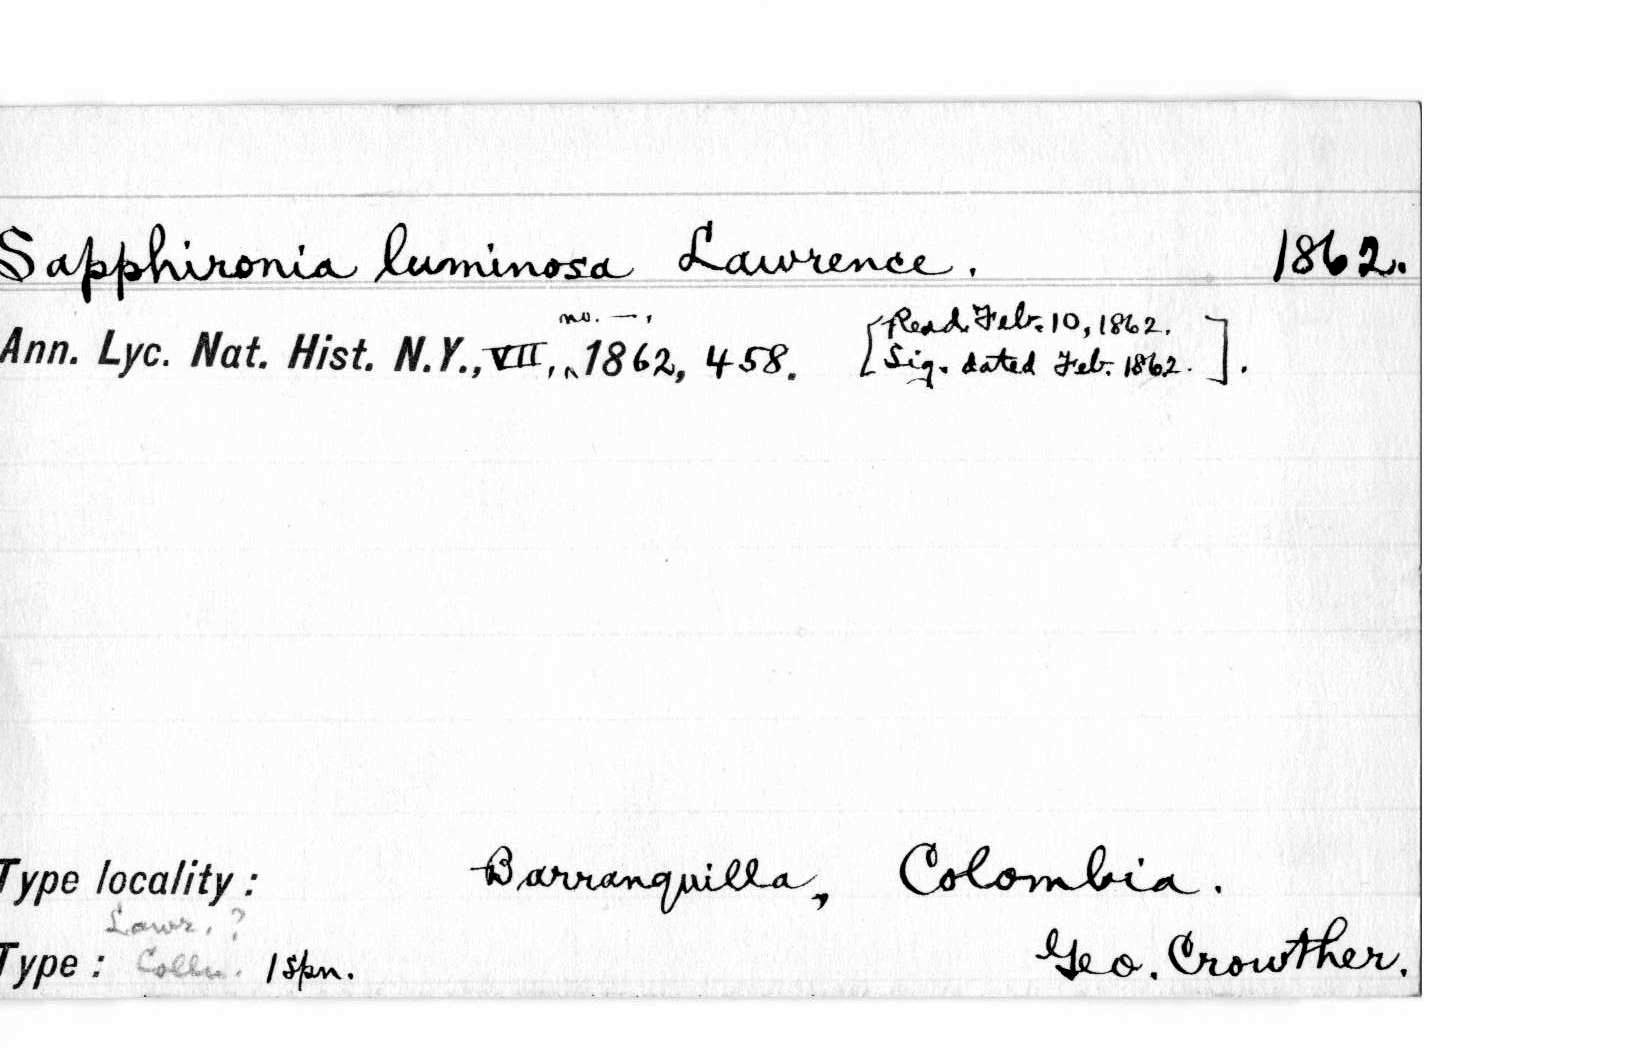 Sapphironia luminosa Lawrence. 1862.
no. —,
Ann. Lyc. Nat. Hist. N.Y., VII, ‸1862, 458. [Read Feb. 10, 1862.
Sig. dated Feb. 1862.].
Type locality: Barranquilla, Colombia.
Lawr. ?
Type: Colln. 1 spn. Geo. Crowther.